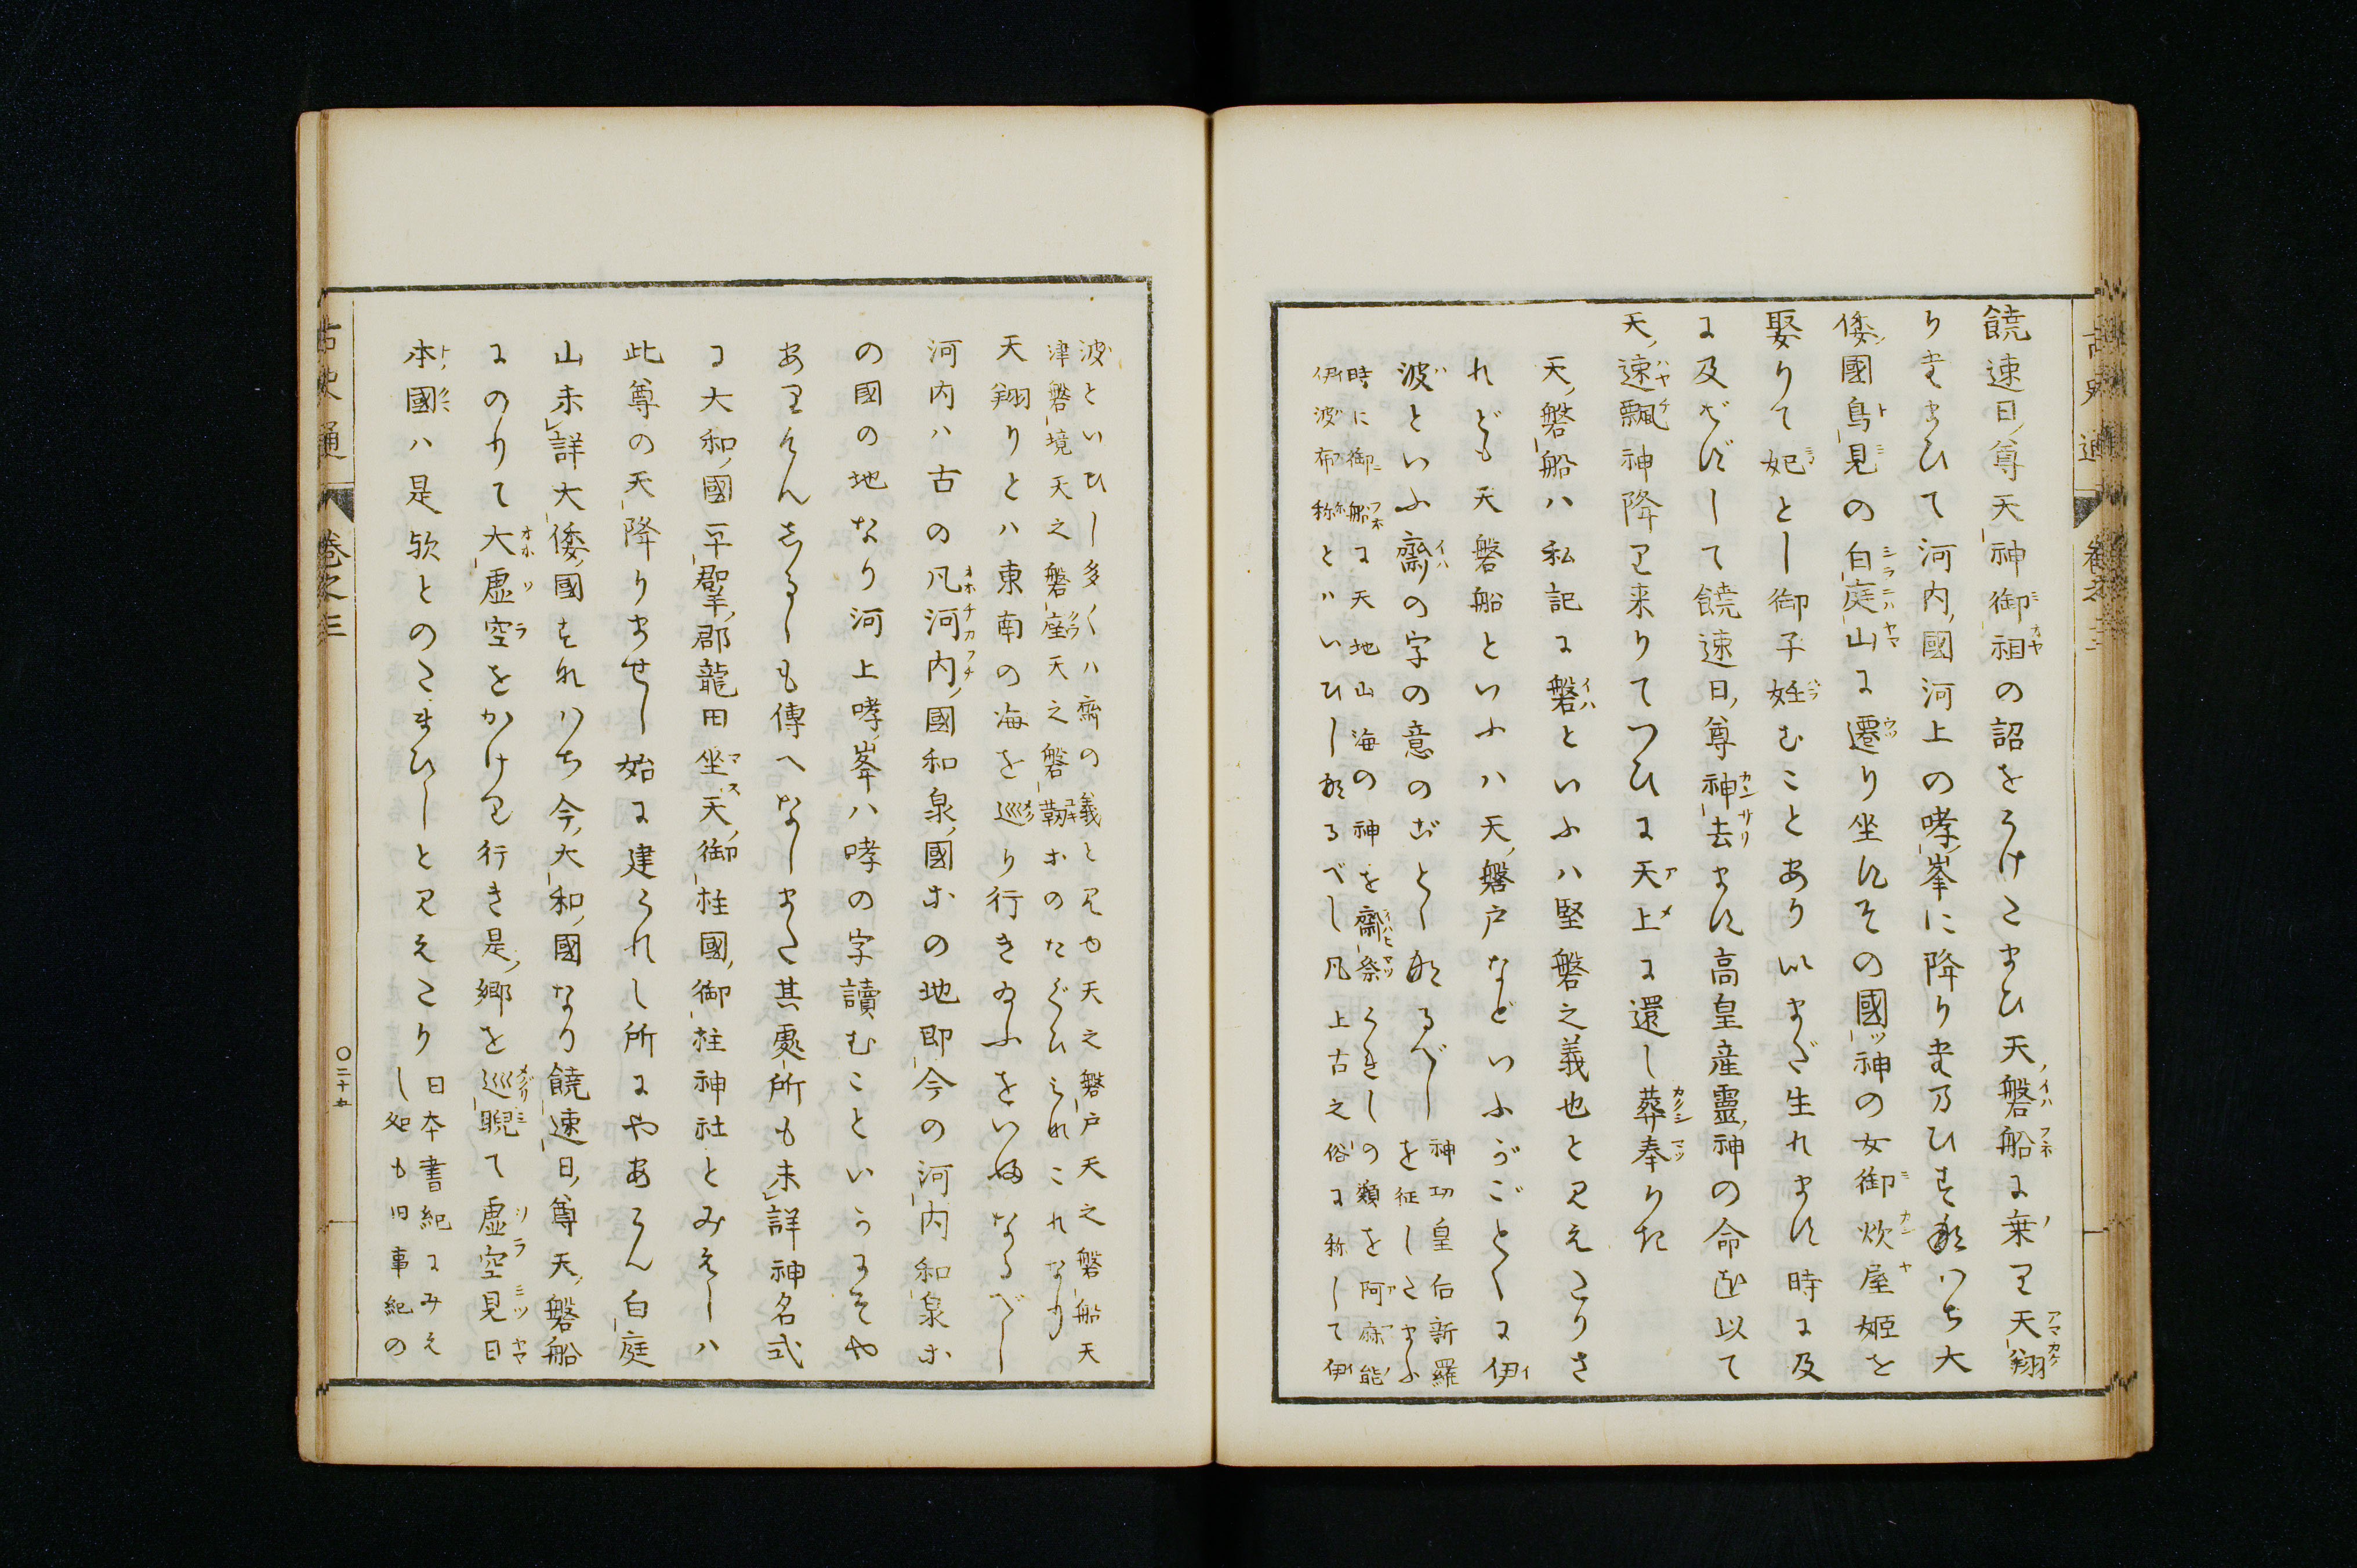 饒速日尊天神御祖の詔をうけたまひ天磐船に乗り天翔
りたまひて河内國河上の哮峯に降りたまひすなハち大
倭國鳥見の白庭山に遷り坐すその國ツ神の女御炊屋姫を
娶りて妃とし御子妊むことありいまだ生れます時に及
に及ばずして饒速日尊神去ます高皇産靈神の命を以て
天速飄神降り来りてつひに天上に還し葬奉りた
天磐船ハ私記に磐といふハ堅磐之義也と見えたりさ
れども天磐船といふハ天磐戸などいふがごとくに伊
波といふ齋の字の意のごとくなるべし
神功皇后新羅
を征したまふ
時に御船に天地山海の神を齋祭らましの類を阿麻能
伊波布称とハいひしなるべし凡上古之俗に称して伊
波といひし多くハ齋の義と見ゆ天之磐戸天之磐船天
津磐境天之磐座天之磐靱ホのたぐひミれこれなり
天翔りとハ東南の海を巡り行き給ふをいふなるべし
河内ハ古の凡河内國和泉國ホの地即今の河内和泉ホ
の國の地なり河上哮峯ハ哮の字讀むこといかにそや
ありけんしるしも傳へなしまた其處所も未詳神名式
に大和國平群郡龍田坐天御柱國御柱神社とみえしハ
此尊の天降りませし始に建られし所にやあらん白庭
山未詳大倭國すなハち今大和國なり饒速日尊天磐船
にのりて大虚空をかけり行き是郷を巡睨て虚空見日
本國ハ是欤とのたまひしと見えたり
日本書紀にみえ
し処も旧事紀の
古史通
巻之三
〇二十五